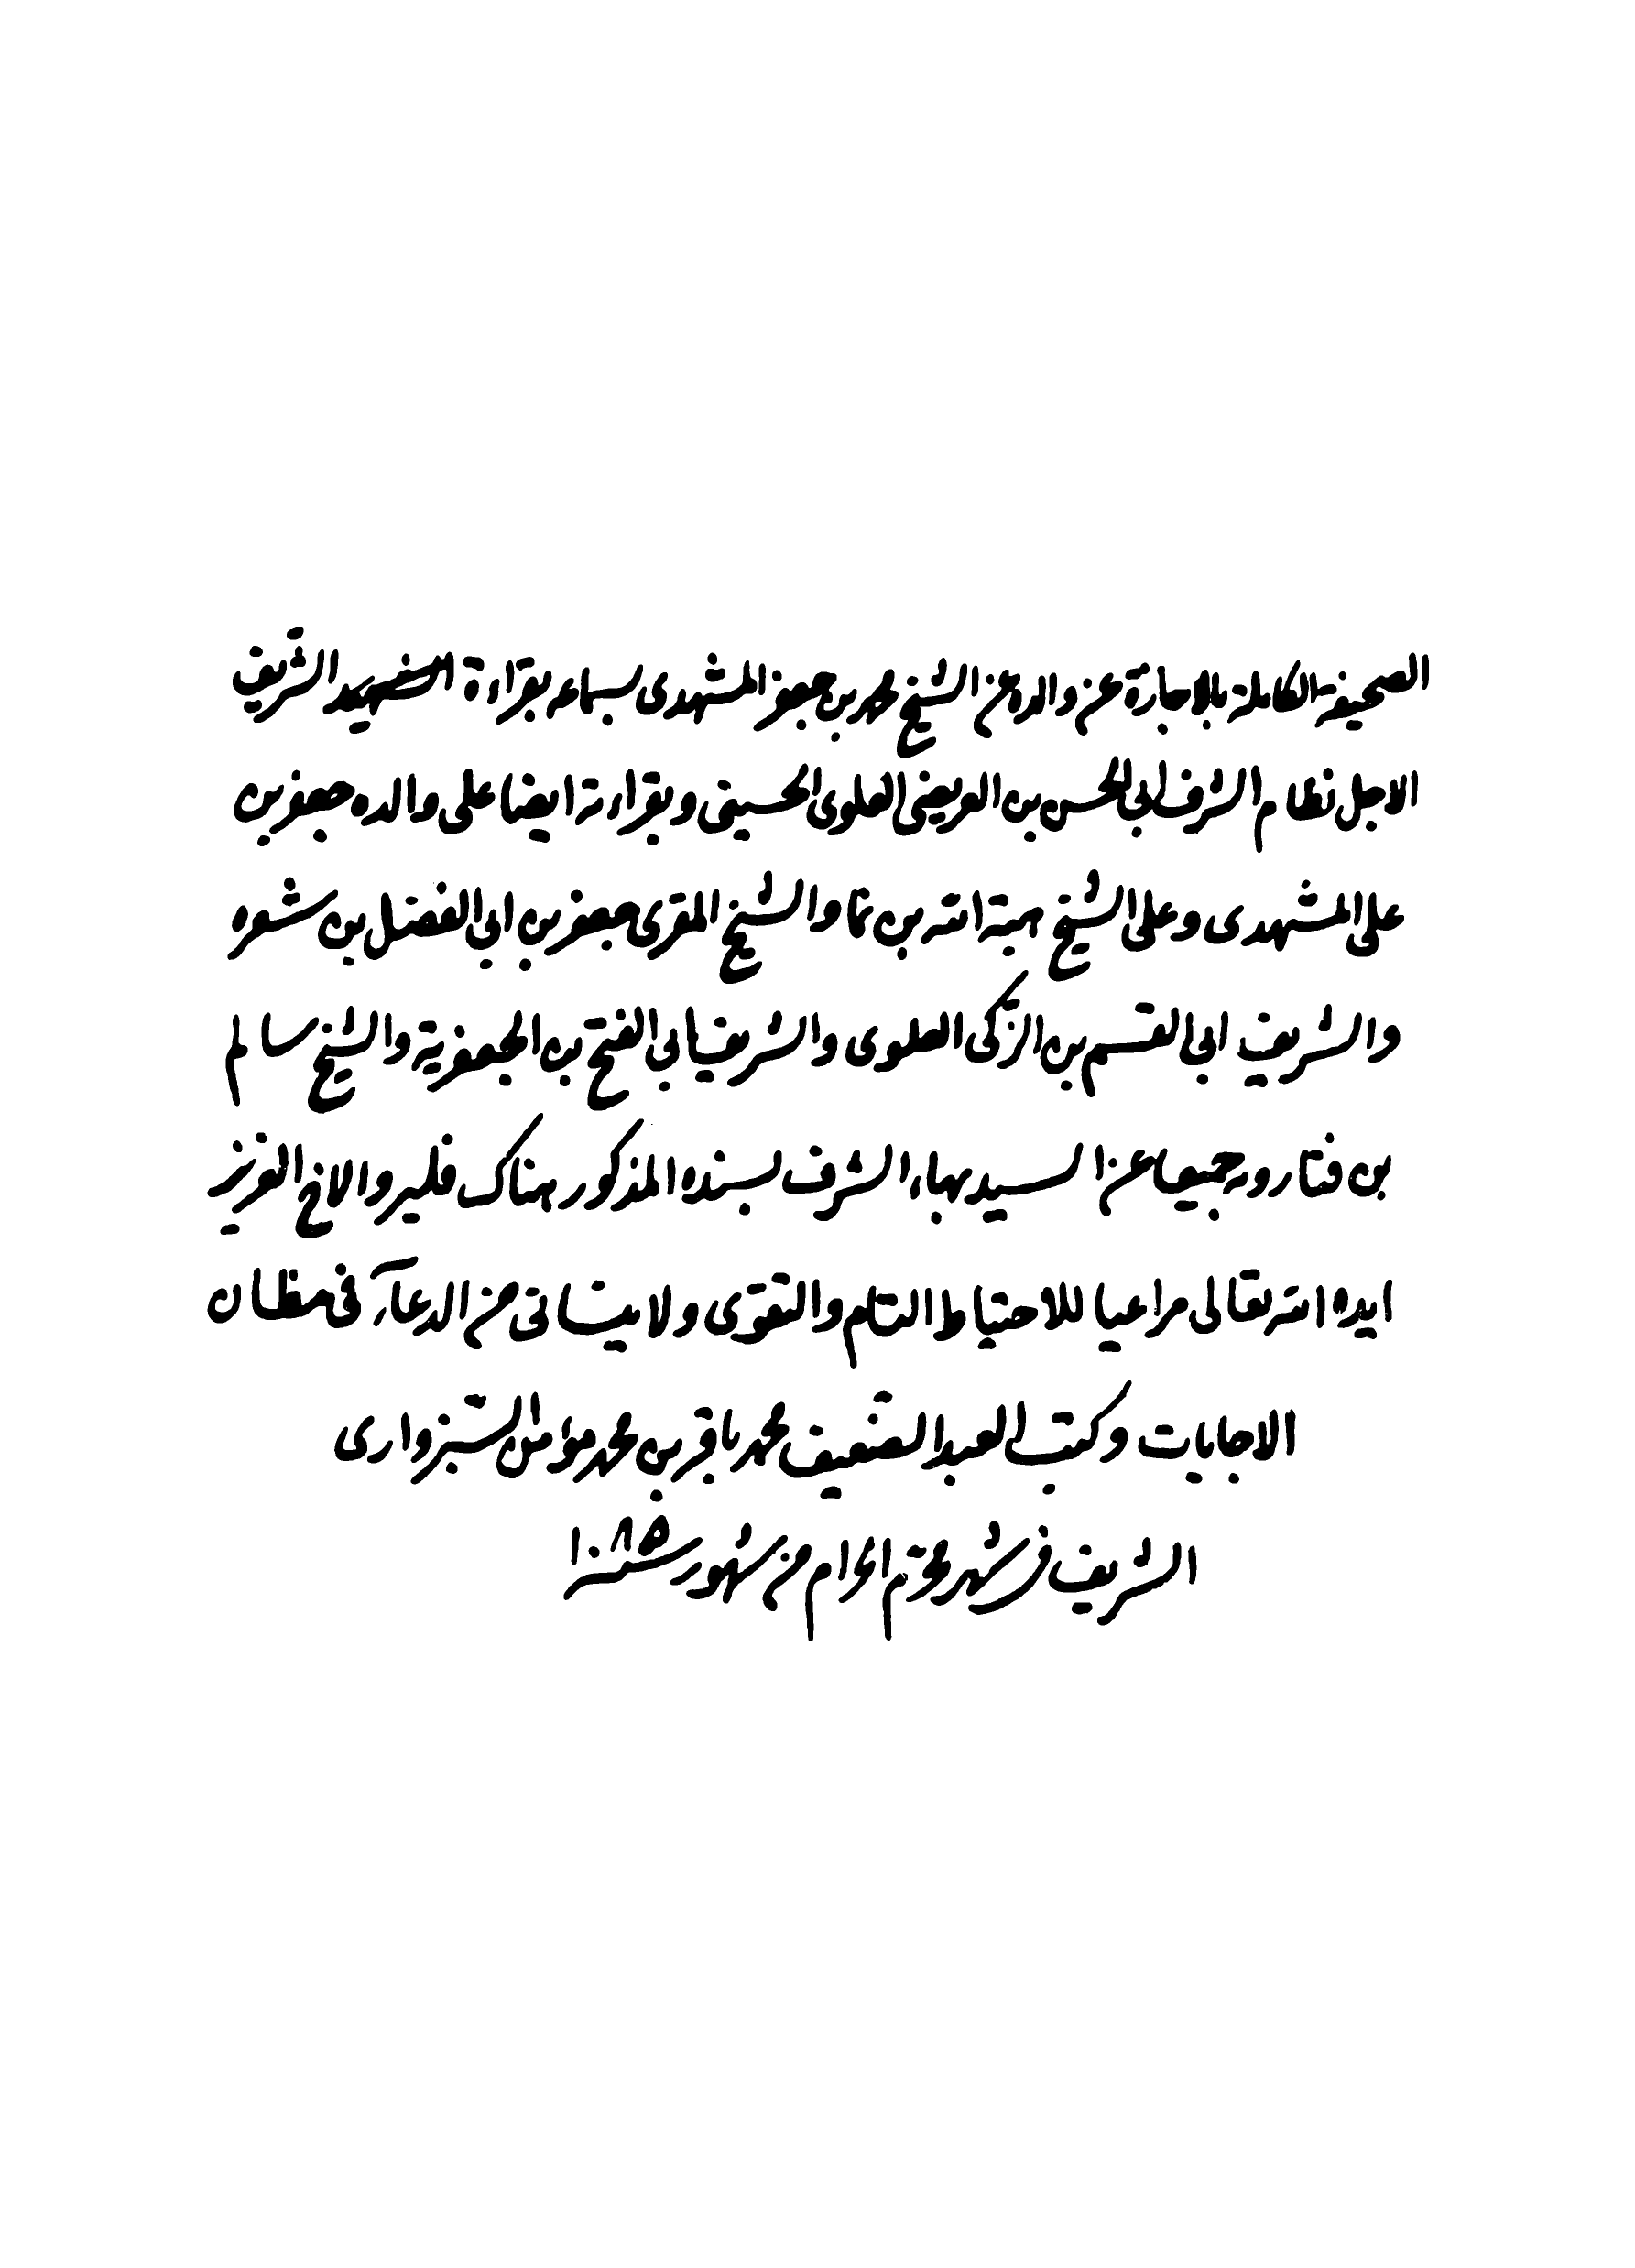 الصحيفة الكاملة بالاجازة عن والده عن الشيخ محمد بن جعفر المشهدى بسماعه بقراءة الشريف
الاجل نظام الشرف ابي الحسن بن العريضى العلوى الحسينى وبقراءته ايضا على والده جعفر بن
على المشهدى وعلى الشيخ هبة الله بن نما والشيخ المقرى جعفر بن ابي الفضل بن شعره
والشريف ابى القسم بن الزكى العلوى والشريف ابي الفتح بن الجعفرية والشيخ سالم
بن قبارويه جميعا عن السيد بهاء الشرف بسنده المذكور هناك فليرو الاخ العزيز
ايده الله تعالى مراعيا للاحتياط التام والتقوى ولا ينسانى من الدعآء فى مظان
الاجابات وكتب العبد الضعيف محمد باقر بن محمد مؤمن السبزوارى
الشريف فى شهر محرم الحرام من شهور سنة